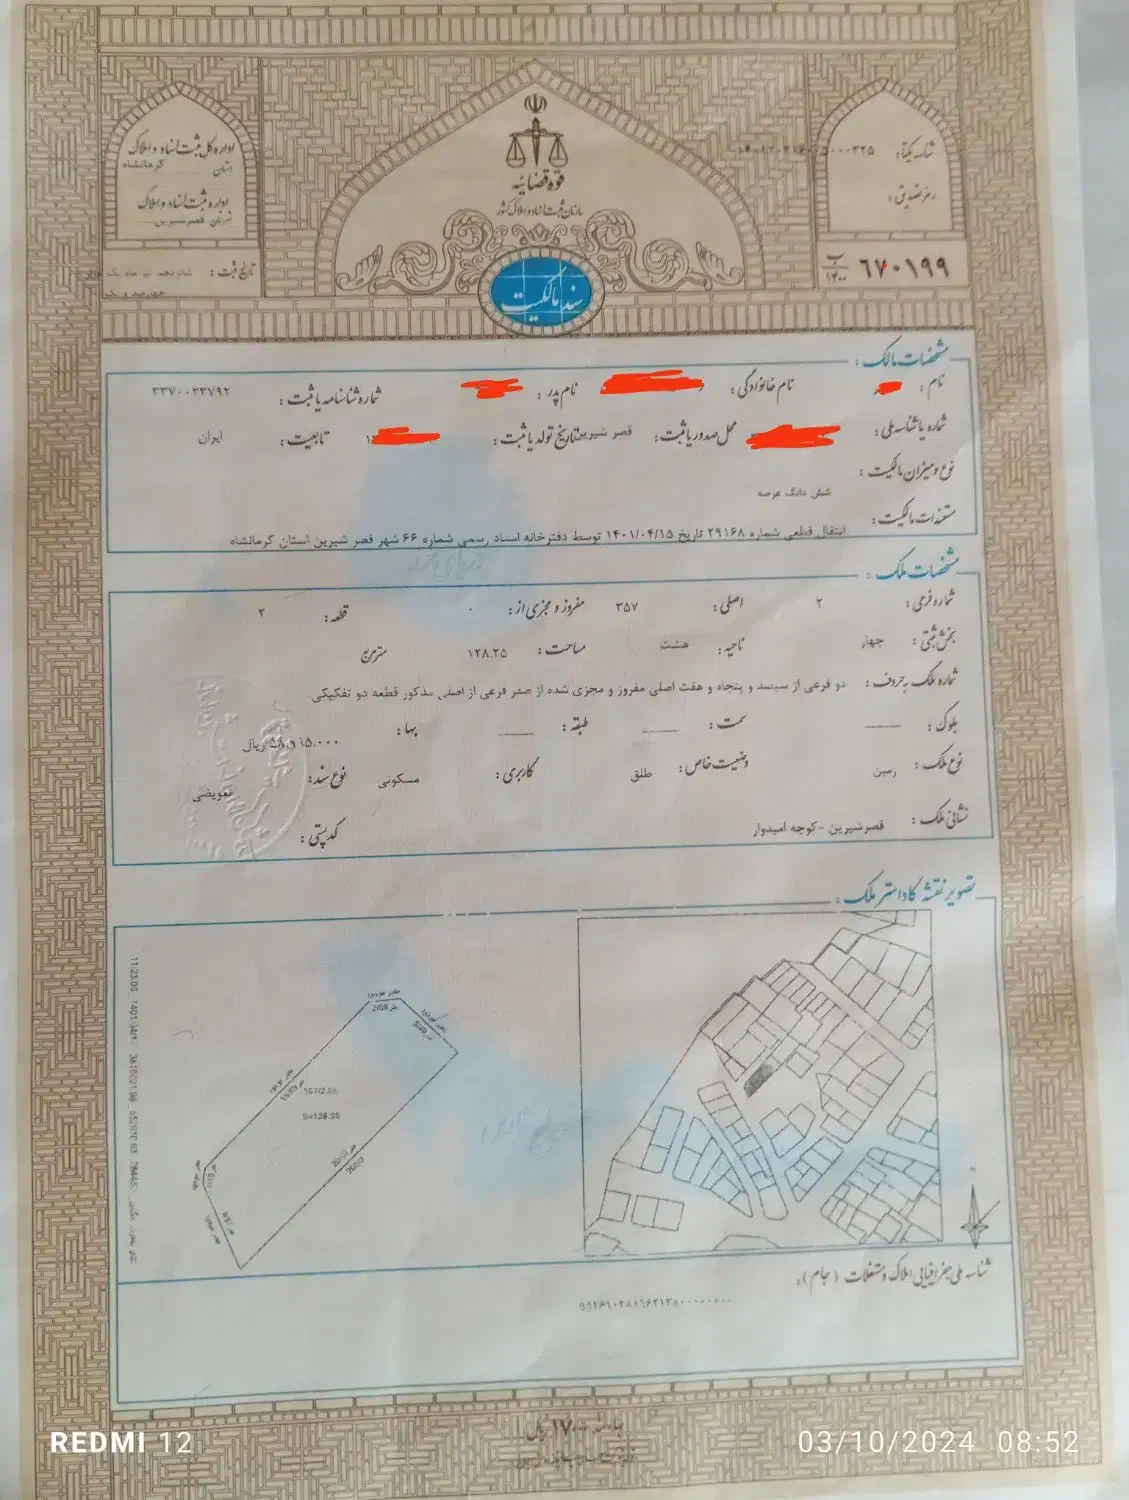 اداره کل ثبت اسناد و املاک
استان کرمانشاه
اداره ثبت اسناد و املاک
شهرستان قصرشیرین
تاریخ ثبت : شانزدهم تیر ماه یک
قوه قضائیه
سازمان ثبت اسناد و املاک کشور
سند مالکیت
شناسه یکتا :
رمز تصدیق :
۶۷۰۱۹۹ ب ۱۴۰۰
مشخصات مالک :
نام : نام خانوادگی : نام پدر : شماره شناسنامه یا ثبت : ۳۳۷۰۰۳۳۷۹۲
شماره یا شناسه ملی : محل صدور یا ثبت : قصر شیرین تاریخ تولد یا ثبت : تابعیت : ایران
نوع و میزان مالکیت :
شش دانگ عرصه
مستندات مالکیت :
انتقال قطعی شماره ۲۹۱۶۸ تاریخ ۱۴۰۱/۰۴/۱۵ توسط دفترخانه اسناد رسمی شماره ۶۶ شهر قصر شیرین استان کرمانشاه
مشخصات ملک :
شماره فرعی : ۲ اصلی : ۳۵۷ مفروز و مجزی از : ۰ قطعه : ۲
بخش ثبتی : چهار ناحیه : هشت مساحت : ۱۲۸.۲۵ متر مربع
شماره ملک به حروف : دو فرعی از سیصد و پنجاه و هفت اصلی مفروز و مجزی شده از صفر فرعی از اصلی مذکور قطعه دو تفکیکی
بلوک : سمت : طبقه : بها : ریال
نوع ملک : زمین وضعیت خاص : طلق کاربری : مسکونی نوع سند : تعویضی
نشانی ملک : قصرشیرین -کوچه امیدوار کد پستی :
تصویر نقشه کاداستر ملک :
S=128.25
شناسه ملی جغرافیایی املاک و مستغلات (جام) :
REDMI 12
03/10/2024 08:52